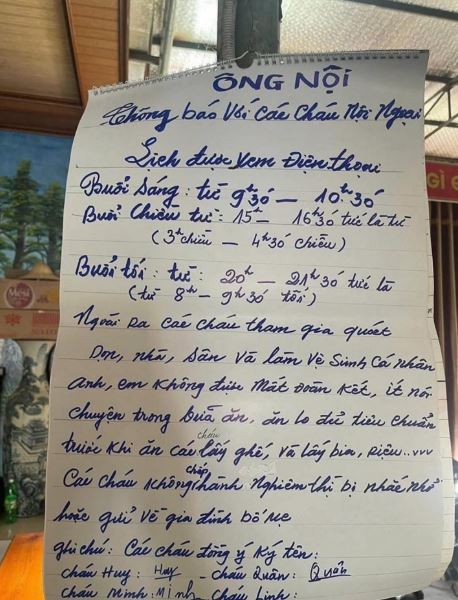 ÔNG NỘI
Thông báo Với Các Cháu Nội Ngoại
Lịch được Xem Điện thoại
Buổi Sáng: từ 9h30 – 10h30
Buổi Chiều từ: 15h – 16h30 tức là từ
(3h chiều – 4h30 chiều)
Buổi tối: từ: 20h – 21h30 tức là
(từ 8h – 9h30 tối)
Ngoài ra các cháu tham gia quét
Dọn, nhà, Sân Và làm Vệ Sinh Cá nhân
Anh, em Không được Mất Đoàn Kết, ít nói
Chuyện trong bữa ăn, ăn lo đủ tiêu chuẩn
trước Khi ăn các cháu lấy ghế, Và lấy bia, Riệu...vvv
Các cháu Không chấp hành Nghiêm thì bị nhắc nhở
hoặc gửi Về gia đình bố Mẹ
ghi chú: Các cháu đồng ý Ký tên:
cháu Huy: Huy – cháu Quân: Quân
cháu Minh: Minh cháu Linh:
GÌ